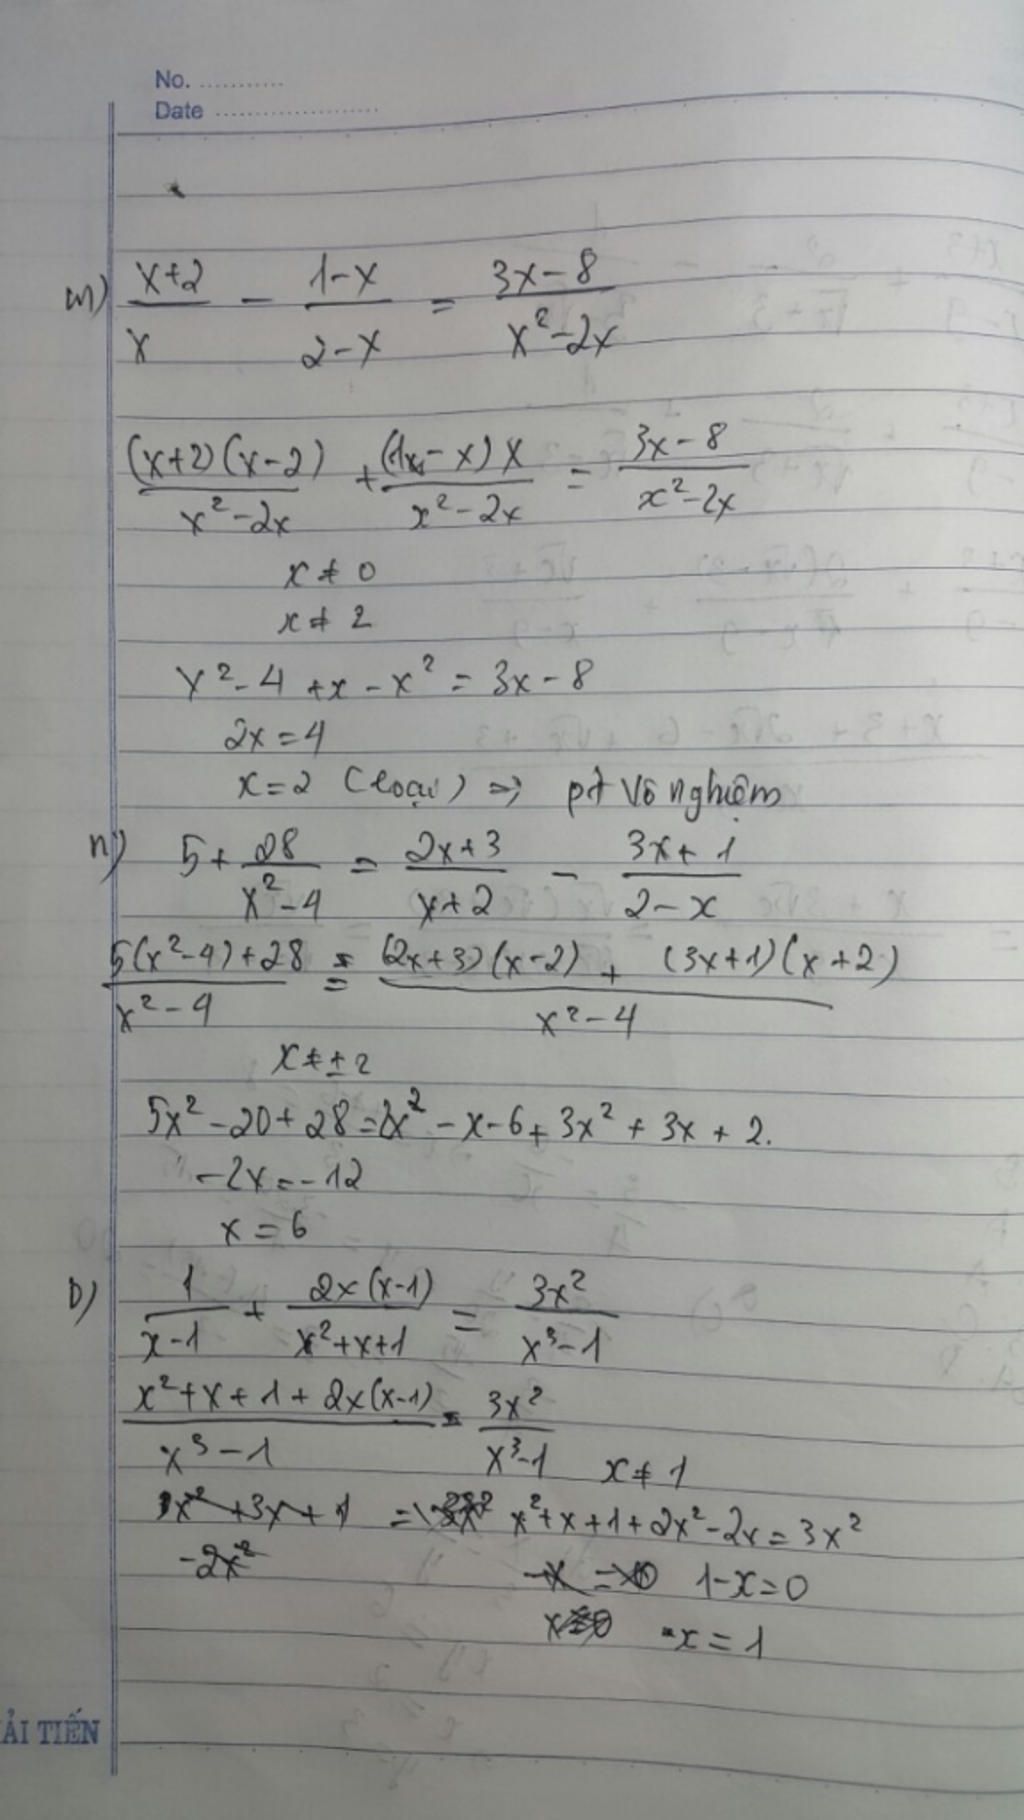 No. ............
Date ......................
m) (x+2)/x - (1-x)/(2-x) = (3x-8)/(x²-2x)
(x+2)(x-2)/(x²-2x) + (1-x)x/(x²-2x) = (3x-8)/(x²-2x)
x ≠ 0
x ≠ 2
x²-4 +x - x² = 3x-8
2x = 4
x = 2 (loại) => pt Vô nghiệm
n) 5 + 28/(x²-4) = (2x+3)/(x+2) - (3x+1)/(2-x)
(5(x²-4)+28)/(x²-4) = ((2x+3)(x-2) + (3x+1)(x+2))/(x²-4)
x ≠ ±2
5x² - 20 + 28 = 2x² - x - 6 + 3x² + 3x + 2.
-2x = -12
x = 6
D) 1/(x-1) + 2x(x-1)/(x²+x+1) = 3x²/(x³-1)
(x²+x+1+2x(x-1))/(x³-1) = 3x²/(x³-1) x ≠ 1
x²+x+1+2x²-2x = 3x²
-2x² 1-x = 0
x = 1
ẢI TIẾN